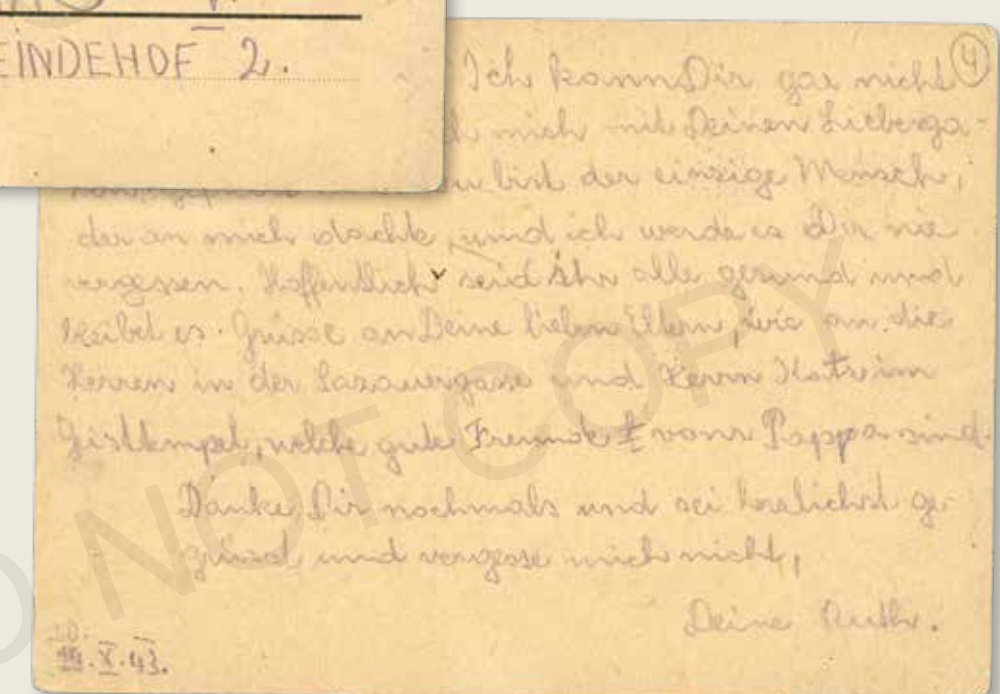 EINDEHOF 2.
4
Ich kann Dir gar nicht
mich mit Deinen Liebesga-
Du bist der einzige Mensch,
der an mich dachte, und ich werde es Dir nie
vergessen. Hoffentlich seid ihr alle gesund und
bleibet es. Grüsse an Deine lieben Eltern, wie an die
Herren in der Sazauergasse und Herrn
welche gute Freunde vom Pappa sind.
Danke Dir nochmals und sei herzlichst ge-
grüsst und vergesse mich nicht,
Deine Ruth.
X.43.
DO NOT COPY